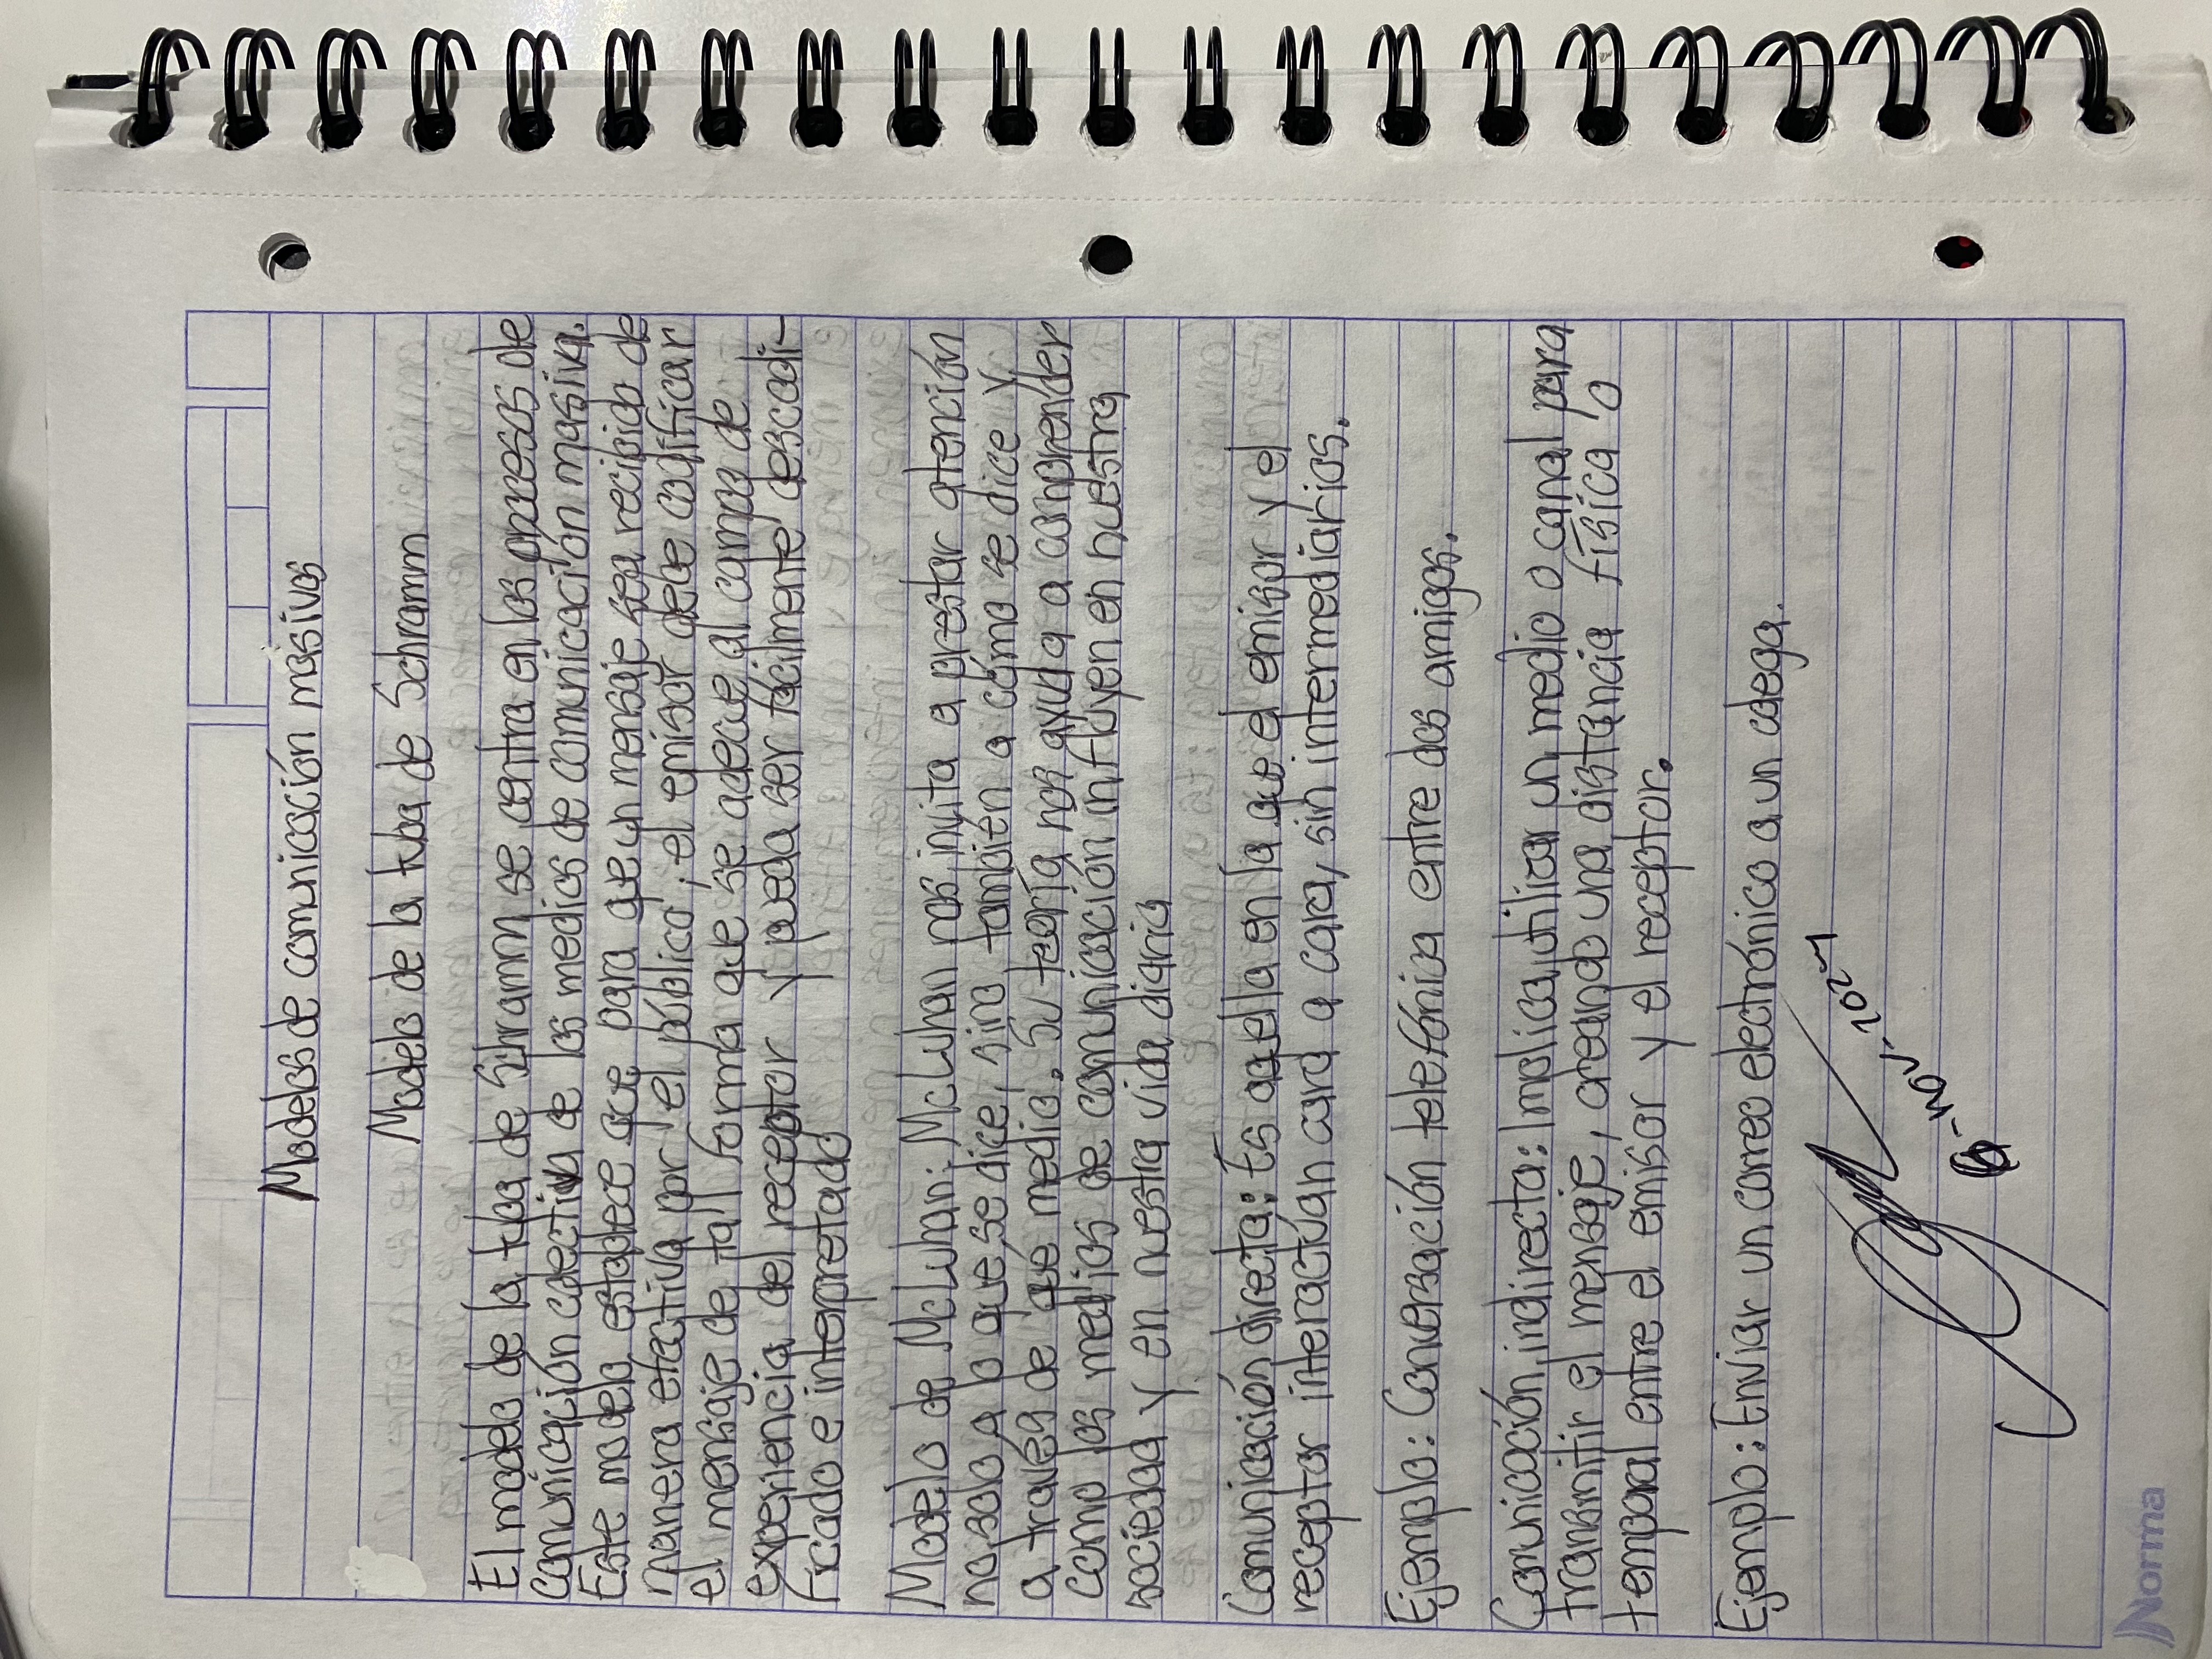 Modelos de comunicación masivos
Modelo de la tuba de Schramm
El modelo de la tuba de Schramm se centra en los procesos de
comunicación colectiva de los medios de comunicación masiva.
Este modelo establece que para que un mensaje sea recibido de
manera efectiva por el público, el emisor debe codificar
el mensaje de tal forma que se adecue al campo de
experiencia del receptor y pueda ser fácilmente descodi-
ficado e interpretado
Modelo de McLuhan: McLuhan nos invita a prestar atención
no solo a lo que se dice, sino también a cómo se dice y
a través de qué medio. Su teoría nos ayuda a comprender
como los medios de comunicación influyen en nuestra
sociedad y en nuestra vida diaria
Comunicación directa: Es aquella en la que el emisor y el
receptor interactúan cara a cara, sin intermediarios.
Ejemplo: Conversación telefónica entre dos amigos.
Comunicación indirecta: Implica utilizar un medio o canal para
transmitir el mensaje, creando una distancia física o
temporal entre el emisor y el receptor.
Ejemplo: Enviar un correo electrónico a un colega.
Norma